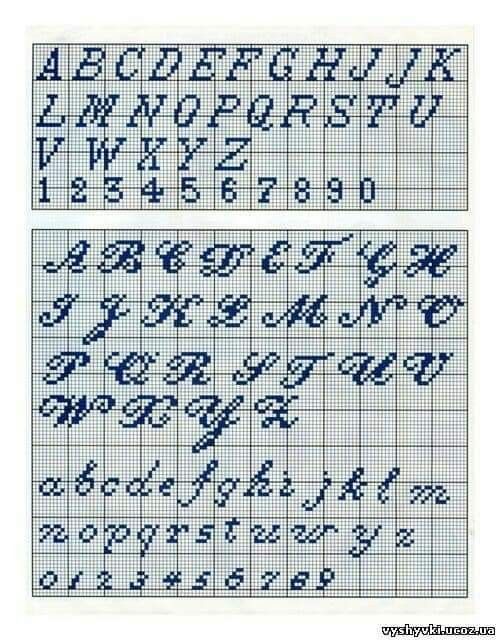 A B C D E F G H I J K
L M N O P Q R S T U
V W X Y Z
1 2 3 4 5 6 7 8 9 0
A B C D E F G H
I J K L M N O
P Q R S T U V
W X Y Z
a b c d e f g h i j k l m
n o p q r s t u w y z
0 1 2 3 4 5 6 7 8 9
vyshyvki.ucoz.ua